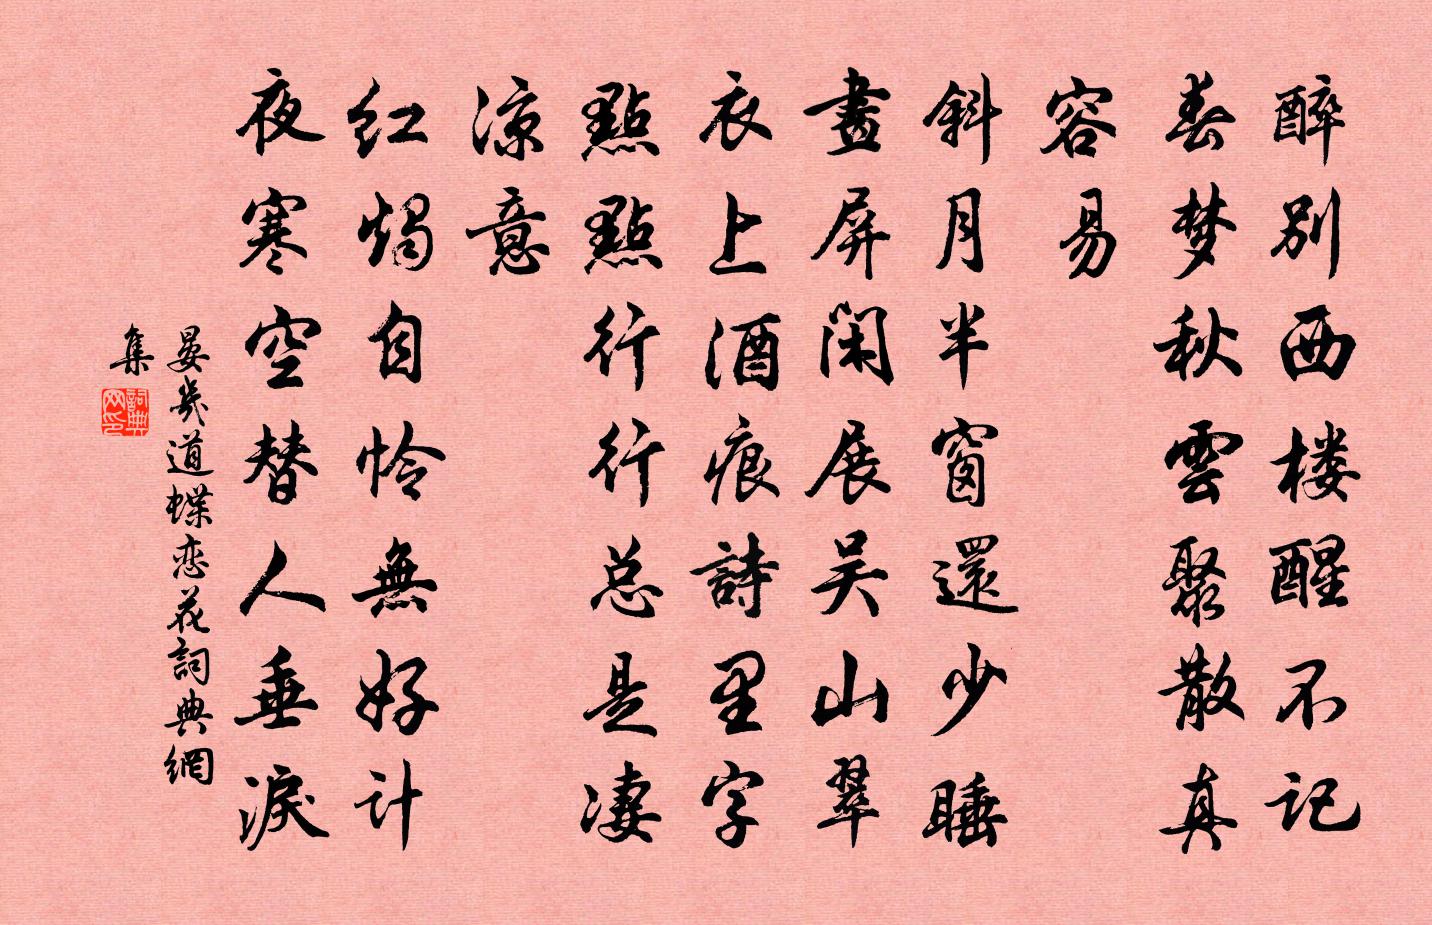 醉别西楼醒不记
春梦秋雲聚散真
容易
斜月半窗還少睡
畫屏闲展吴山翠
衣上酒痕詩里字
點點行行总是凄
凉意
红烛自怜無好计
夜寒空替人垂淚
晏幾道蝶恋花詞典網
集
詞典网印